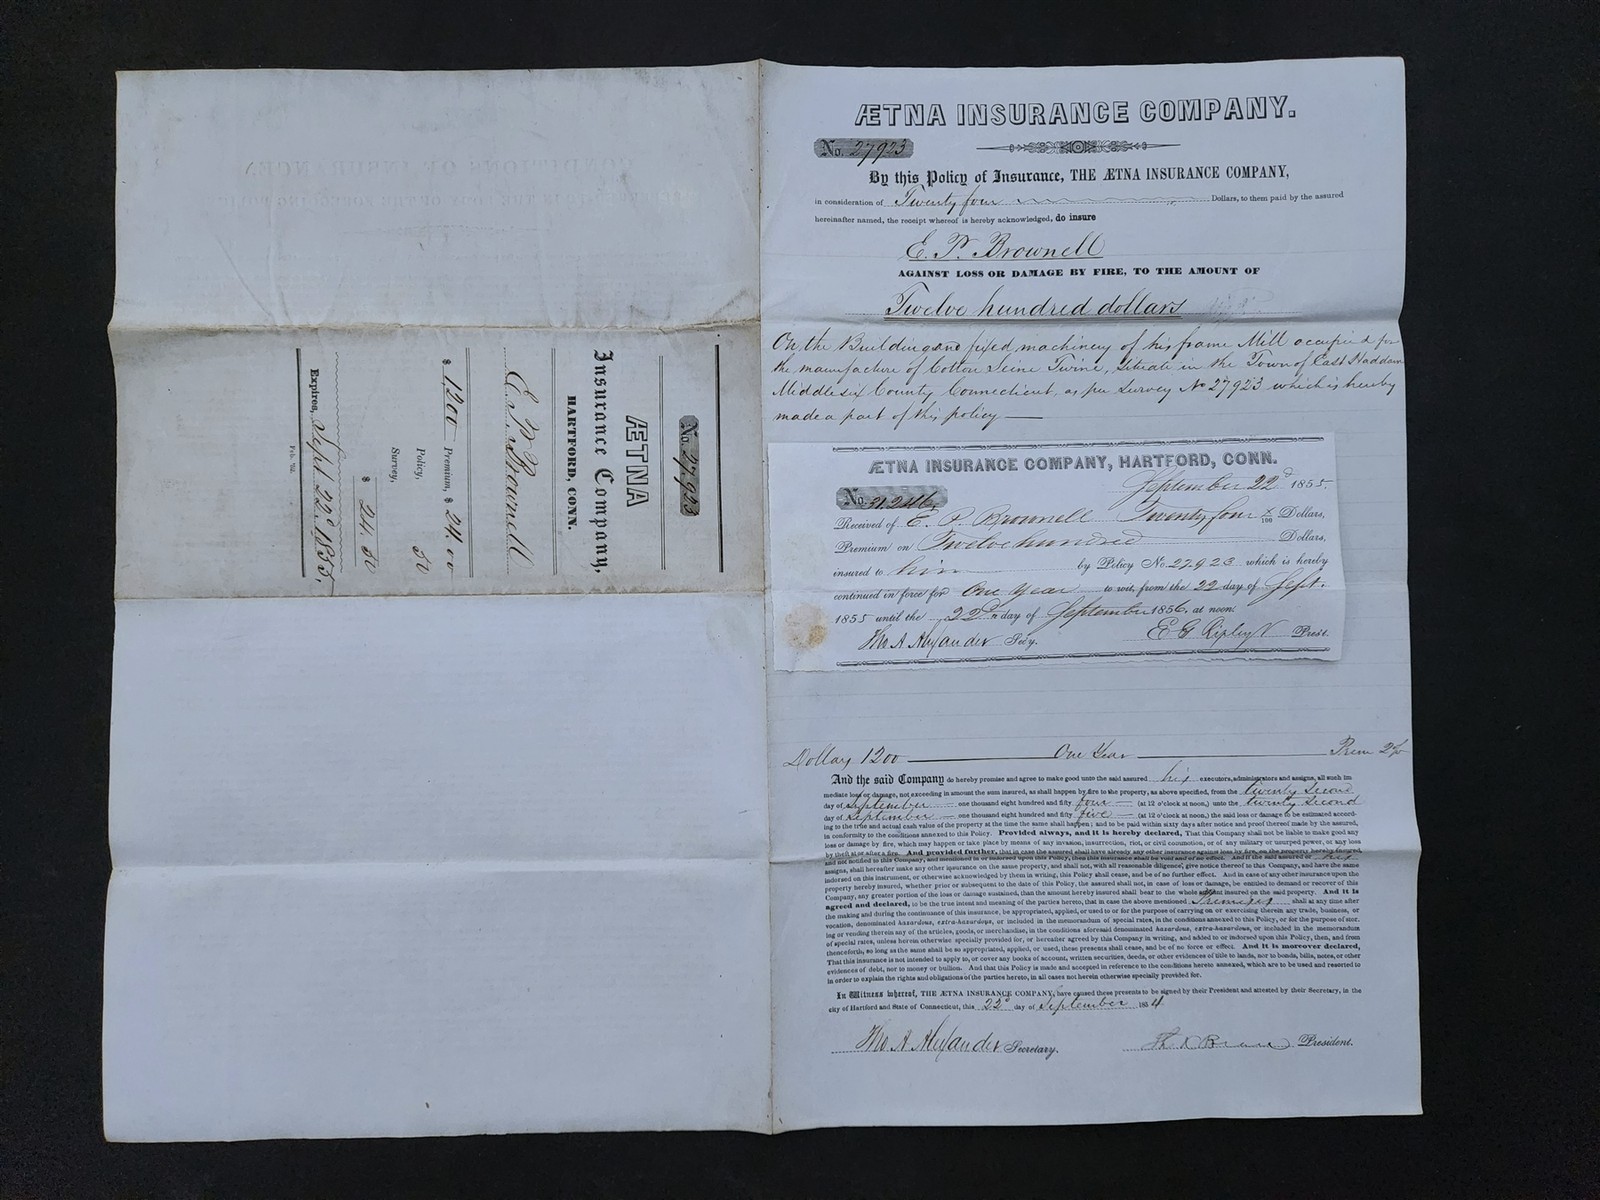 No. 27,923
ÆTNA
Insurance Company,
HARTFORD, CONN.
E. P. Brownell
$ 1,200 Premium, $ 24.00
Policy, 50
Survey,
$ 24.50
Expires, Sept 22d 1855,
ÆTNA INSURANCE COMPANY.
No. 27923
By this Policy of Insurance, THE ÆTNA INSURANCE COMPANY,
in consideration of Twenty four Dollars, to them paid by the assured
hereinafter named, the receipt whereof is hereby acknowledged, do insure
E. P. Brownell
AGAINST LOSS OR DAMAGE BY FIRE, TO THE AMOUNT OF
Twelve hundred dollars
On the Building and fixed machinery of his frame Mill occupied for
the manufacture of Cotton Seine Twine, Situate in the Town of East Haddam
Middlesix County Connecticut, as per Survey No 27923 which is hereby
made a part of this policy
ÆTNA INSURANCE COMPANY, HARTFORD, CONN.
September 22d 1855.
No. 31,246,
Received of E. P. Brownell Twenty four x/100 Dollars,
Premium on Twelve hundred Dollars,
insured to him by Policy No. 27923 which is hereby
continued in force for One Year to wit, from the 22 day of Sept.
1855 until the 22d day of September 1856, at noon.
Tho A Alexander Secy. E G Ripley Prest.
Dollars 1200 One Year Prem 2
And the said Company do hereby promise and agree to make good unto the said assured his executors, administrators and assigns, all such im
mediate loss or damage, not exceeding in amount the sum insured, as shall happen by fire to the property, as above specified, from the twenty second
day of September one thousand eight hundred and fifty four (at 12 o'clock at noon,) unto the twenty second
day of September one thousand eight hundred and fifty five (at 12 o'clock at noon,) the said loss or damage to be estimated accord-
ing to the true and actual cash value of the property at the time the same shall happen; and to be paid within sixty days after notice and proof thereof made by the assured,
in conformity to the conditions annexed to this Policy. Provided always, and it is hereby declared, That this Company shall not be liable to make good any
loss or damage by fire, which may happen or take place by means of any invasion, insurrection, riot, or civil commotion, or of any military or usurped power, or any loss
by theft at or after a fire. And provided further, that in case the assured shall have already any other insurance against loss by fire, on the property hereby insured,
and not notified to this Company, and mentioned in or indorsed upon this Policy, then this insurance shall be void and of no effect. And if the said assured or his
assigns, shall hereafter make any other insurance on the same property, and shall not, with all reasonable diligence, give notice thereof to this Company, and have the same
indorsed on this instrument, or otherwise acknowledged by them in writing, this Policy shall cease, and be of no further effect. And in case of any other insurance upon the
property hereby insured, whether prior or subsequent to the date of this Policy, the assured shall not, in case of loss or damage, be entitled to demand or recover of this
Company, any greater portion of the loss or damage sustained, than the amount hereby insured shall bear to the whole amount insured on the said property. And it is
agreed and declared, to be the true intent and meaning of the parties hereto, that in case the above mentioned Premises shall at any time after
the making and during the continuance of this insurance, be appropriated, applied, or used to or for the purpose of carrying on or exercising therein any trade, business, or
vocation, denominated hazardous, extra-hazardous, or included in the memorandum of special rates, in the conditions annexed to this Policy, or for the purpose of stor-
ing or vending therein any of the articles, goods, or merchandise, in the conditions aforesaid denominated hazardous, extra-hazardous, or included in the memorandum
of special rates, unless herein otherwise specially provided for, or hereafter agreed by this Company in writing, and added to or indorsed upon this Policy, then, and from
thenceforth, so long as the same shall be so appropriated, applied, or used, these presents shall cease, and be of no force or effect. And it is moreover declared,
That this insurance is not intended to apply to, or cover any books of account, written securities, deeds, or other evidences of title to lands, nor to bonds, bills, notes, or other
evidences of debt, nor to money or bullion. And that this Policy is made and accepted in reference to the conditions hereto annexed, which are to be used and resorted to
in order to explain the rights and obligations of the parties hereto, in all cases not herein otherwise specially provided for.
In Witness whereof, THE ÆTNA INSURANCE COMPANY, have caused these presents to be signed by their President and attested by their Secretary, in the
city of Hartford and State of Connecticut, this 22d day of September 1854
Tho A Alexander Secretary. President.